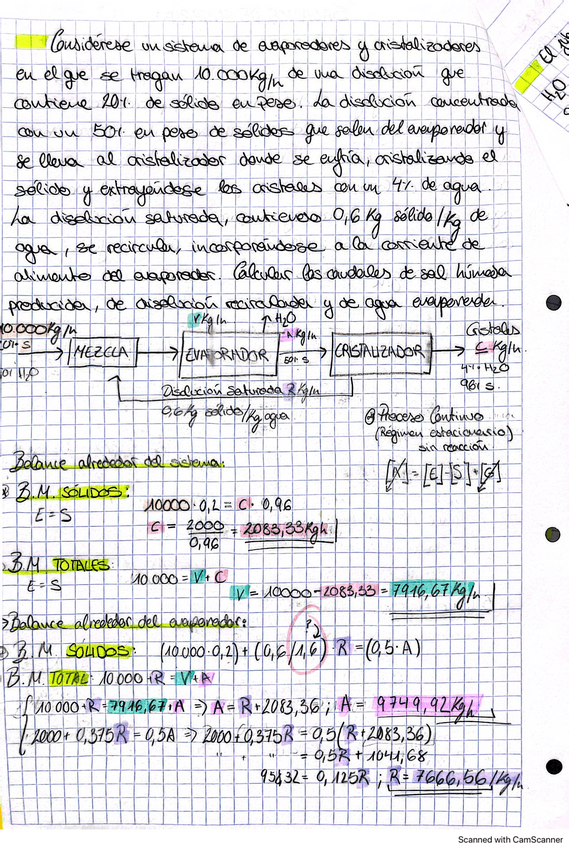 Considérese un sistema de evaporadores y cristalizadores
en el que se tragan 10.000Kg/h de una disolución que
contiene 20% de sólido en Peso. La disolución concentrada
con un 50% en peso de sólidos que salen del evaporador y
se lleva al cristalizador donde se enfría, cristalizando el
sólido y extrayéndose los cristales con un 4% de agua.
La disolución saturada, contieneso 0,6 Kg sólido/Kg de
agua, se recircula, incorporándose a la corriente de
alimento del evaporador. Calcular los caudales de sal húmeda
producida, de disolución recirculada y de agua evaporada.
El
H2O
V Kg/h ↑H2O
10.000Kg/h
MEZCLA → EVAPORADOR → CRISTALIZADOR →
Kg/h
50% S
Cristales
C Kg/h
4% H2O
96% S.
Disolución Saturada R Kg/h
0,6Kg sólido/Kg agua
Proceso Continuo
(Régimen estacionario)
sin reacción.
[A] = [E] - [S] + [G]
Balance alrededor del sistema:
B.M. SÓLIDOS:
E = S
10000 · 0,2 = C · 0,96
C = 2000/0,96 = 2083,33Kg/h
B.M TOTALES:
E = S
10.000 = V + C
V = 10000 - 2083,33 = 7916,67Kg/h
Balance alrededor del evaporador:
¿?
B.M. SÓLIDOS: (10000·0,2) + (0,6/1,6)·R = (0,5·A)
B.M. TOTAL: 10000+R = V+A
10.000+R = 7916,67+A ⇒ A = R+2083,36; A = 9749,92Kg/h
2000+0,375R = 0,5A ⇒ 2000+0,375R = 0,5(R+2083,36)
" " " = 0,5R + 1041,68
958,32 = 0,125R; R = 7666,56/Kg/h
Scanned with CamScanner